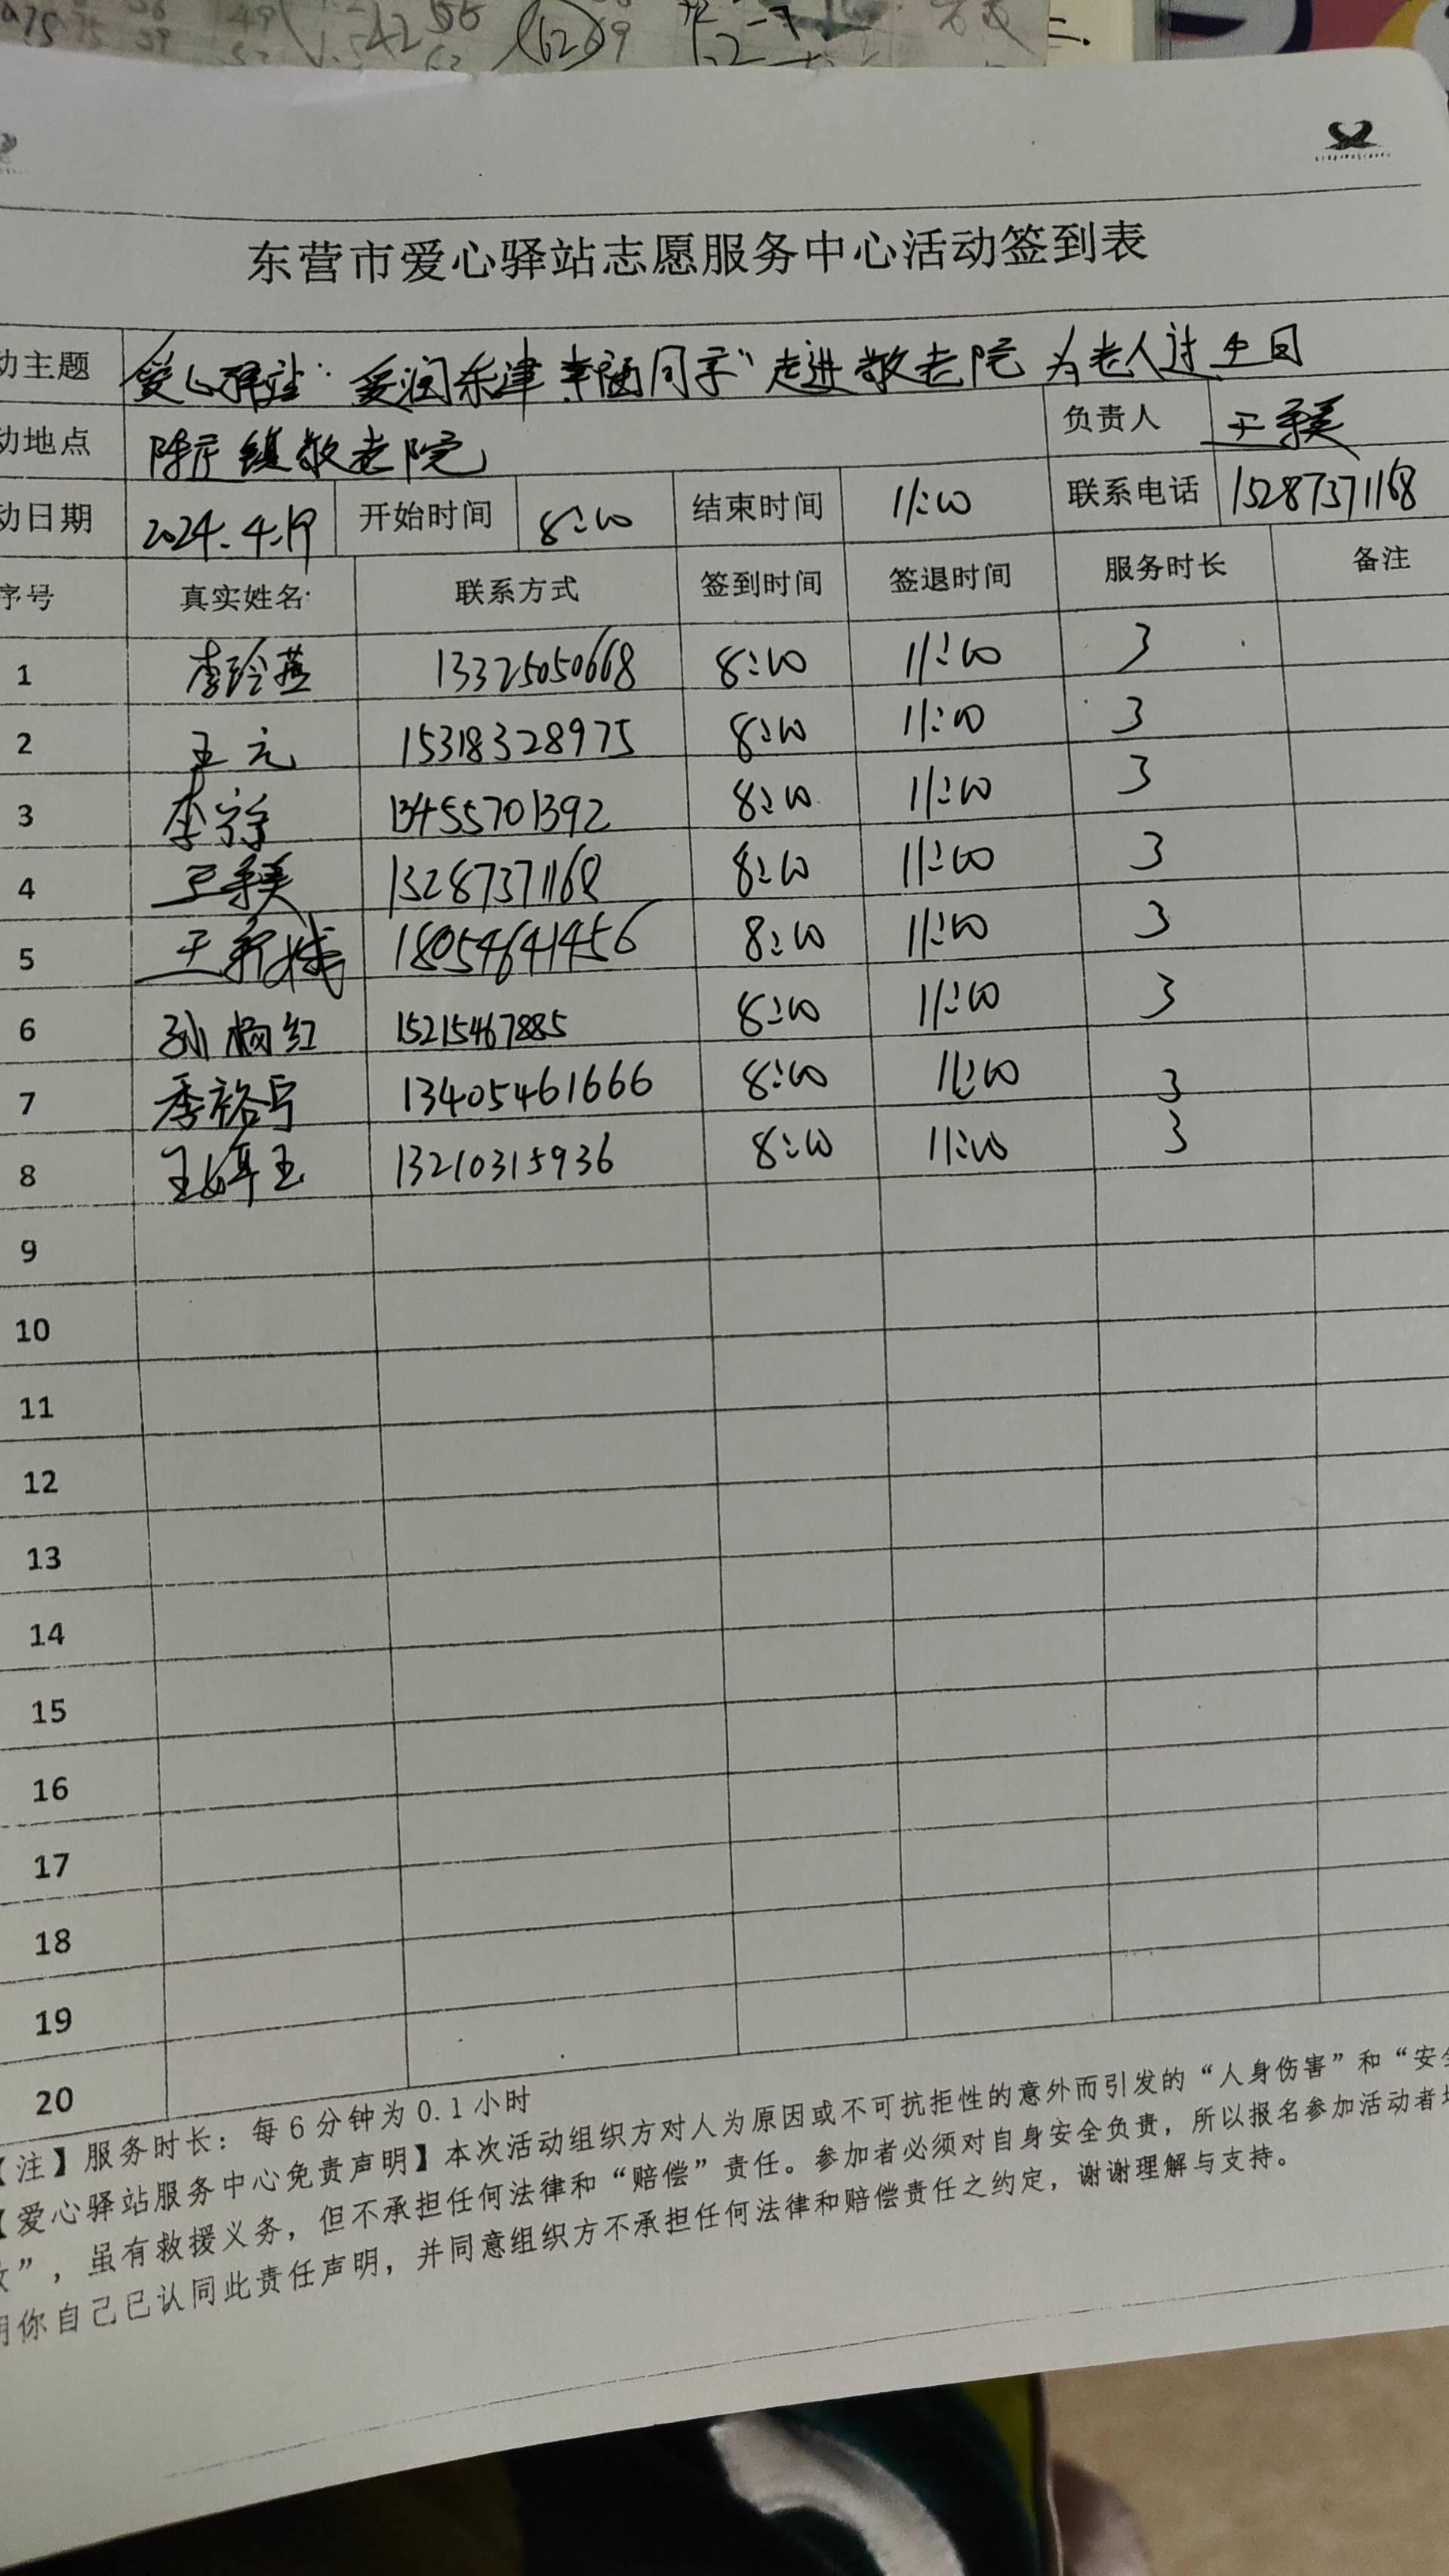 东营市爱心驿站志愿服务中心活动签到表
动主题 爱心驿站"爱润东津 幸福同享"走进敬老院 为老人过生日
动地点 陈庄镇敬老院 负责人
动日期 2024.4.19 开始时间 8:00 结束时间 11:00 联系电话 15287371168
序号 真实姓名 联系方式 签到时间 签退时间 服务时长 备注
1 李玲燕 13325050668 8:00 11:00 3
2 王元 15318328975 8:00 11:00 3
3 李 13455701392 8:00 11:00 3
4 13287371168 8:00 11:00 3
5 王 18054641456 8:00 11:00 3
6 孙 红 15215467885 8:00 11:00 3
7 季裕宁 13405461666 8:00 11:00 3
8 王 玉 13210315936 8:00 11:00 3
9
10
11
12
13
14
15
16
17
18
19
20
【注】服务时长：每6分钟为0.1小时
【爱心驿站服务中心免责声明】本次活动组织方对人为原因或不可抗拒性的意外而引发的“人身伤害”和“安全
”，虽有救援义务，但不承担任何法律和“赔偿”责任。参加者必须对自身安全负责，所以报名参加活动者
明你自己已认同此责任声明，并同意组织方不承担任何法律和赔偿责任之约定，谢谢理解与支持。